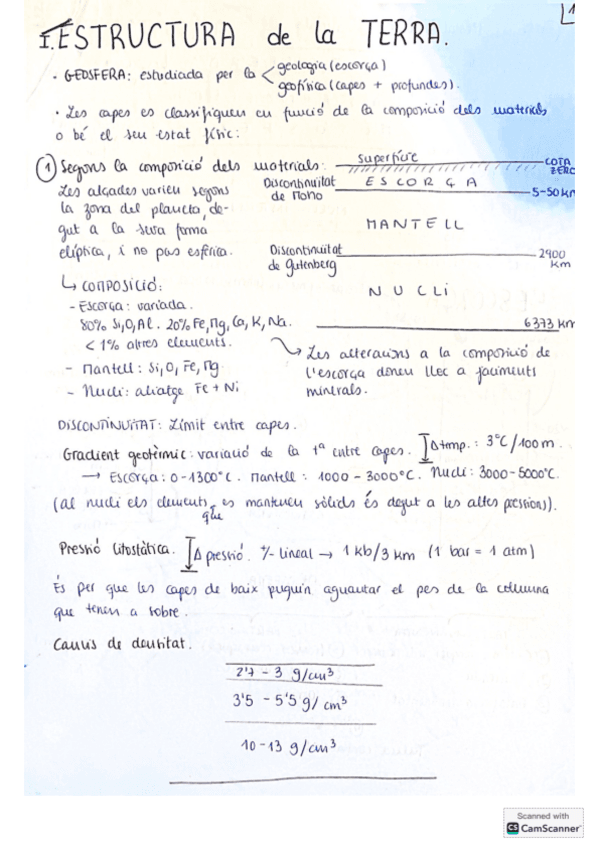 1
I. ESTRUCTURA de la TERRA.
· GEOSFERA: estudiada per la < geologia (escorça)
geofísica (capes + profundes).
· Les capes es classifiquen en funció de la composició dels materials
o bé el seu estat físic:
① Segons la composició dels materials:
Les alçades varien segons
la zona del planeta, de-
gut a la seva forma
el·líptica, i no pas esfèrica.
Superfície
COTA ZERO
Discontinuïtat
de Moho
ESCORÇA
5-50 km
MANTELL
Discontinuïtat
de Gutenberg
2900
km
NUCLI
6373 km
↳ COMPOSICIÓ:
- Escorça: variada.
80% Si, O, Al. 20% Fe, Mg, Ca, K, Na.
< 1% altres elements.
- Mantell: Si, O, Fe, Mg.
- Nucli: aliatge Fe + Ni
Les alteracions a la composició de
l'escorça donen lloc a jaciments
minerals.
DISCONTINUÏTAT: Límit entre capes.
Gradient geotèrmic: variació de la Tª entre capes. Δtemp.: 3°C/100m.
→ Escorça: 0-1300°C. Mantell: 1000 - 3000°C. Nucli: 3000-5000°C.
(Al nucli els elements que es mantenen sòlids és degut a les altes pressions).
Pressió litostàtica. Δ pressió. +/- lineal → 1 kb/3 km (1 bar = 1 atm)
És per que les capes de baix puguin aguantar el pes de la columna
que tenen a sobre.
Canvis de densitat.
2'7 - 3 g/cm³
3'5 - 5'5 g/cm³
10-13 g/cm³
Scanned with
CS CamScanner